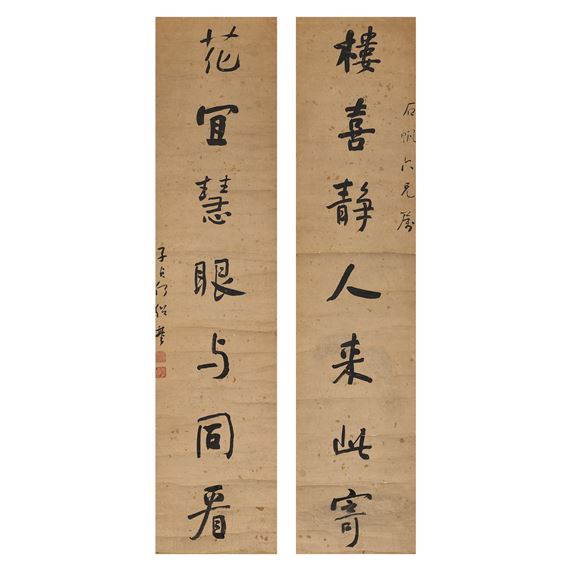 石帆六兄属
樓喜静人来此寄
花宜慧眼与同看
子貞何紹基